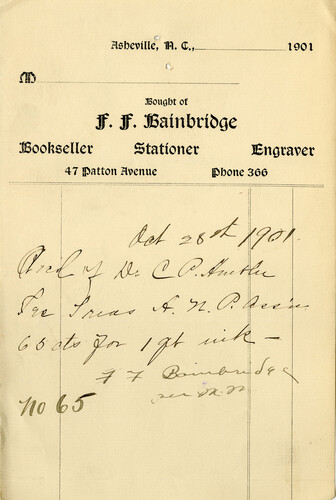 Asheville, N. C., 1901
M
Bought of
F. F. Bainbridge
Bookseller Stationer Engraver
47 Patton Avenue Phone 366
Oct 28th 1901.
Recd of Dr C P. Ambler
Sec Treas A. N. P. Ass'n
65 cts for 1 qt ink —
F F Bainbridge
per
No 65